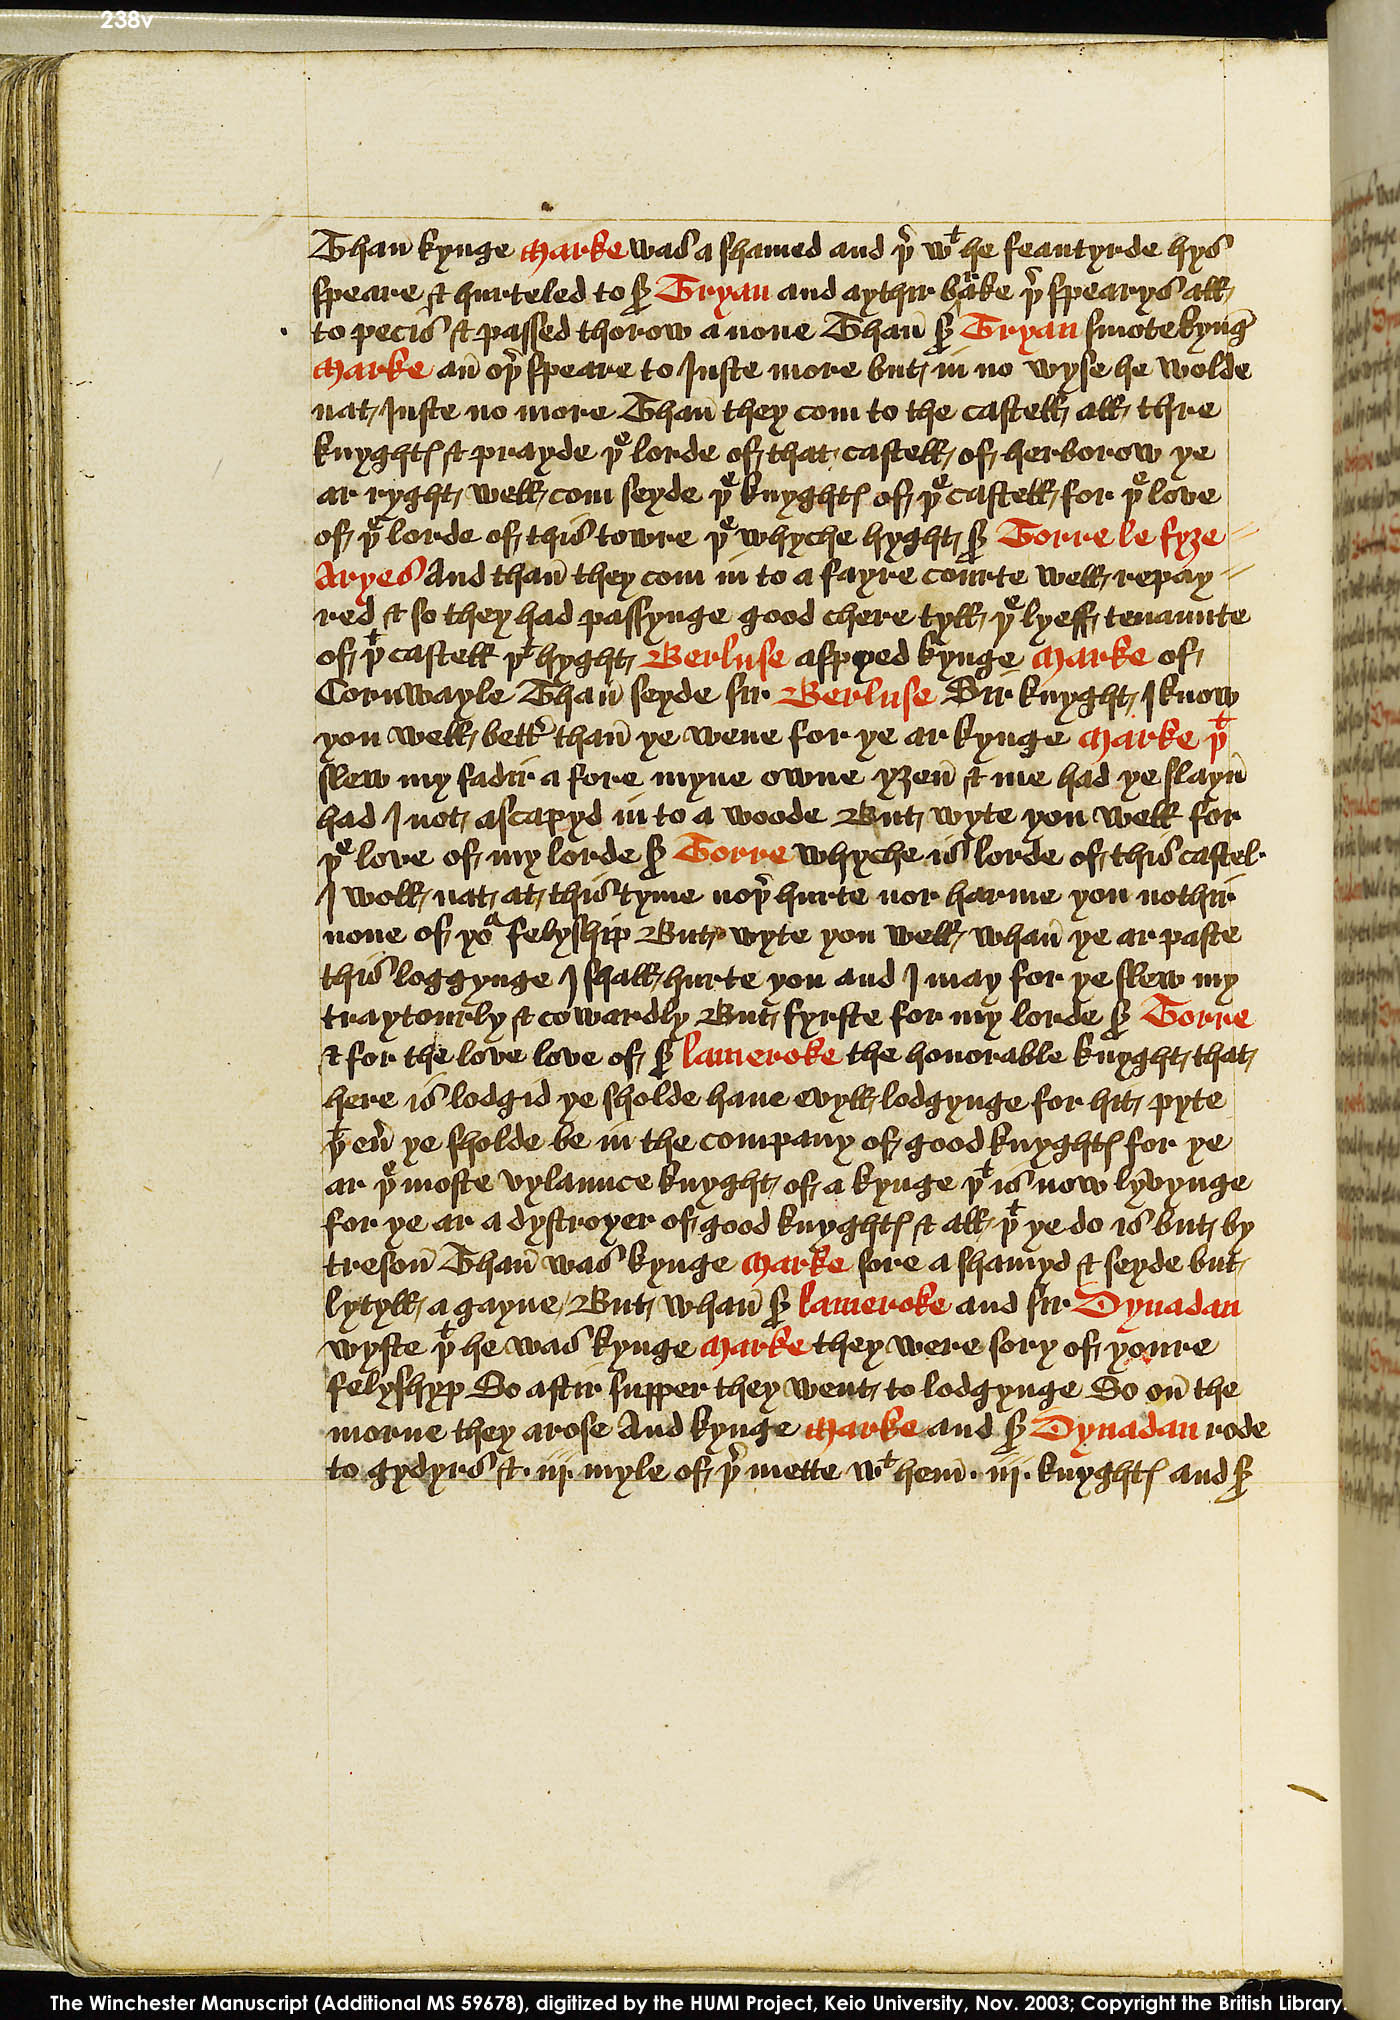 238v
Than̄ kynge Marke was a shamed and þ̉ wᵗ he feautyrde hys
speare & hurteled to sẙ Tryan and aythir bʳake þ̉ spearys all
to pecis & passed thorow a none Than̄ sẙ Tryan smote kynḡ
Marke an̄ oþ̉ speare to Juste more but in no wyse he wolde
nat Juste no more Than̄ they com to the castell all thre
knyghtꝭ & prayde þᵉ lorde of that castell of herborow ye
ar ryght well com seyde þᵉ knyghtꝭ of þᵉ castell for þᵉ love
of þᵉ lorde of this towre þᵉ whyche hyght sẙ Torre le fyze
Aryes And than̄ they com in to a fayre courte well repay
red & so they had passynge good chere tyll þᵉ lyeff tenaunte
of þᵗ castell þᵗ hyght Berluse aspyed kynge Marke of
Cornwayle Than̄ seyde sir Berluse Sir knyght I know
you well bett̉ than̄ ye wene for ye ar kynge Marke þᵗ
slew my fadir a fore myne owne yȝen̄ & me had ye slayn̄
had I not ascapyd in to a woode But wyte you well for
þᵉ love of my lorde sẙ Torre whyche is lorde of this castel
I woll nat at this tyme noþ̉ hurte nor harme you nothir
none of yoᵃ felyship But wyte you well whan̄ ye ar paste
this loggynge I shall hurte you and I may for ye slew my
traytourly & cowardly But fyrste for my lorde sẙ Torre
& for the love love of sẙ lameroke the honorable knyght that
here is lodgid ye sholde haue evyll lodgynge for hit pyte
þᵗ eủ ye sholde be in the company of good knyghtꝭ for ye
ar þᵉ moste vylaunce knyght of a kynge þᵗ is now lyvynge
for ye ar a dystroyer of good knyghtꝭ & all þᵗ ye do is but by
treson̄ Than̄ was kynge Marke sore a shamyd & seyde but
lytyll a gayne / But whan̄ sẙ lameroke and sir Dynadan
wyste þᵗ he was kynge Marke they were sory of youre
felyshyp So aftir supper they went to lodgynge So on̄ the
morne they arose And kynge Marke and sẙ Dynadan rode
to gydyrs & · iij · myle of þ̉ mette wᵗ hem̄ · iij · knyghtꝭ and sẙ
The Winchester Manuscript (Additional MS 59678), digitized by the HUMI Project, Keio University, Nov. 2003; Copyright the British Library.